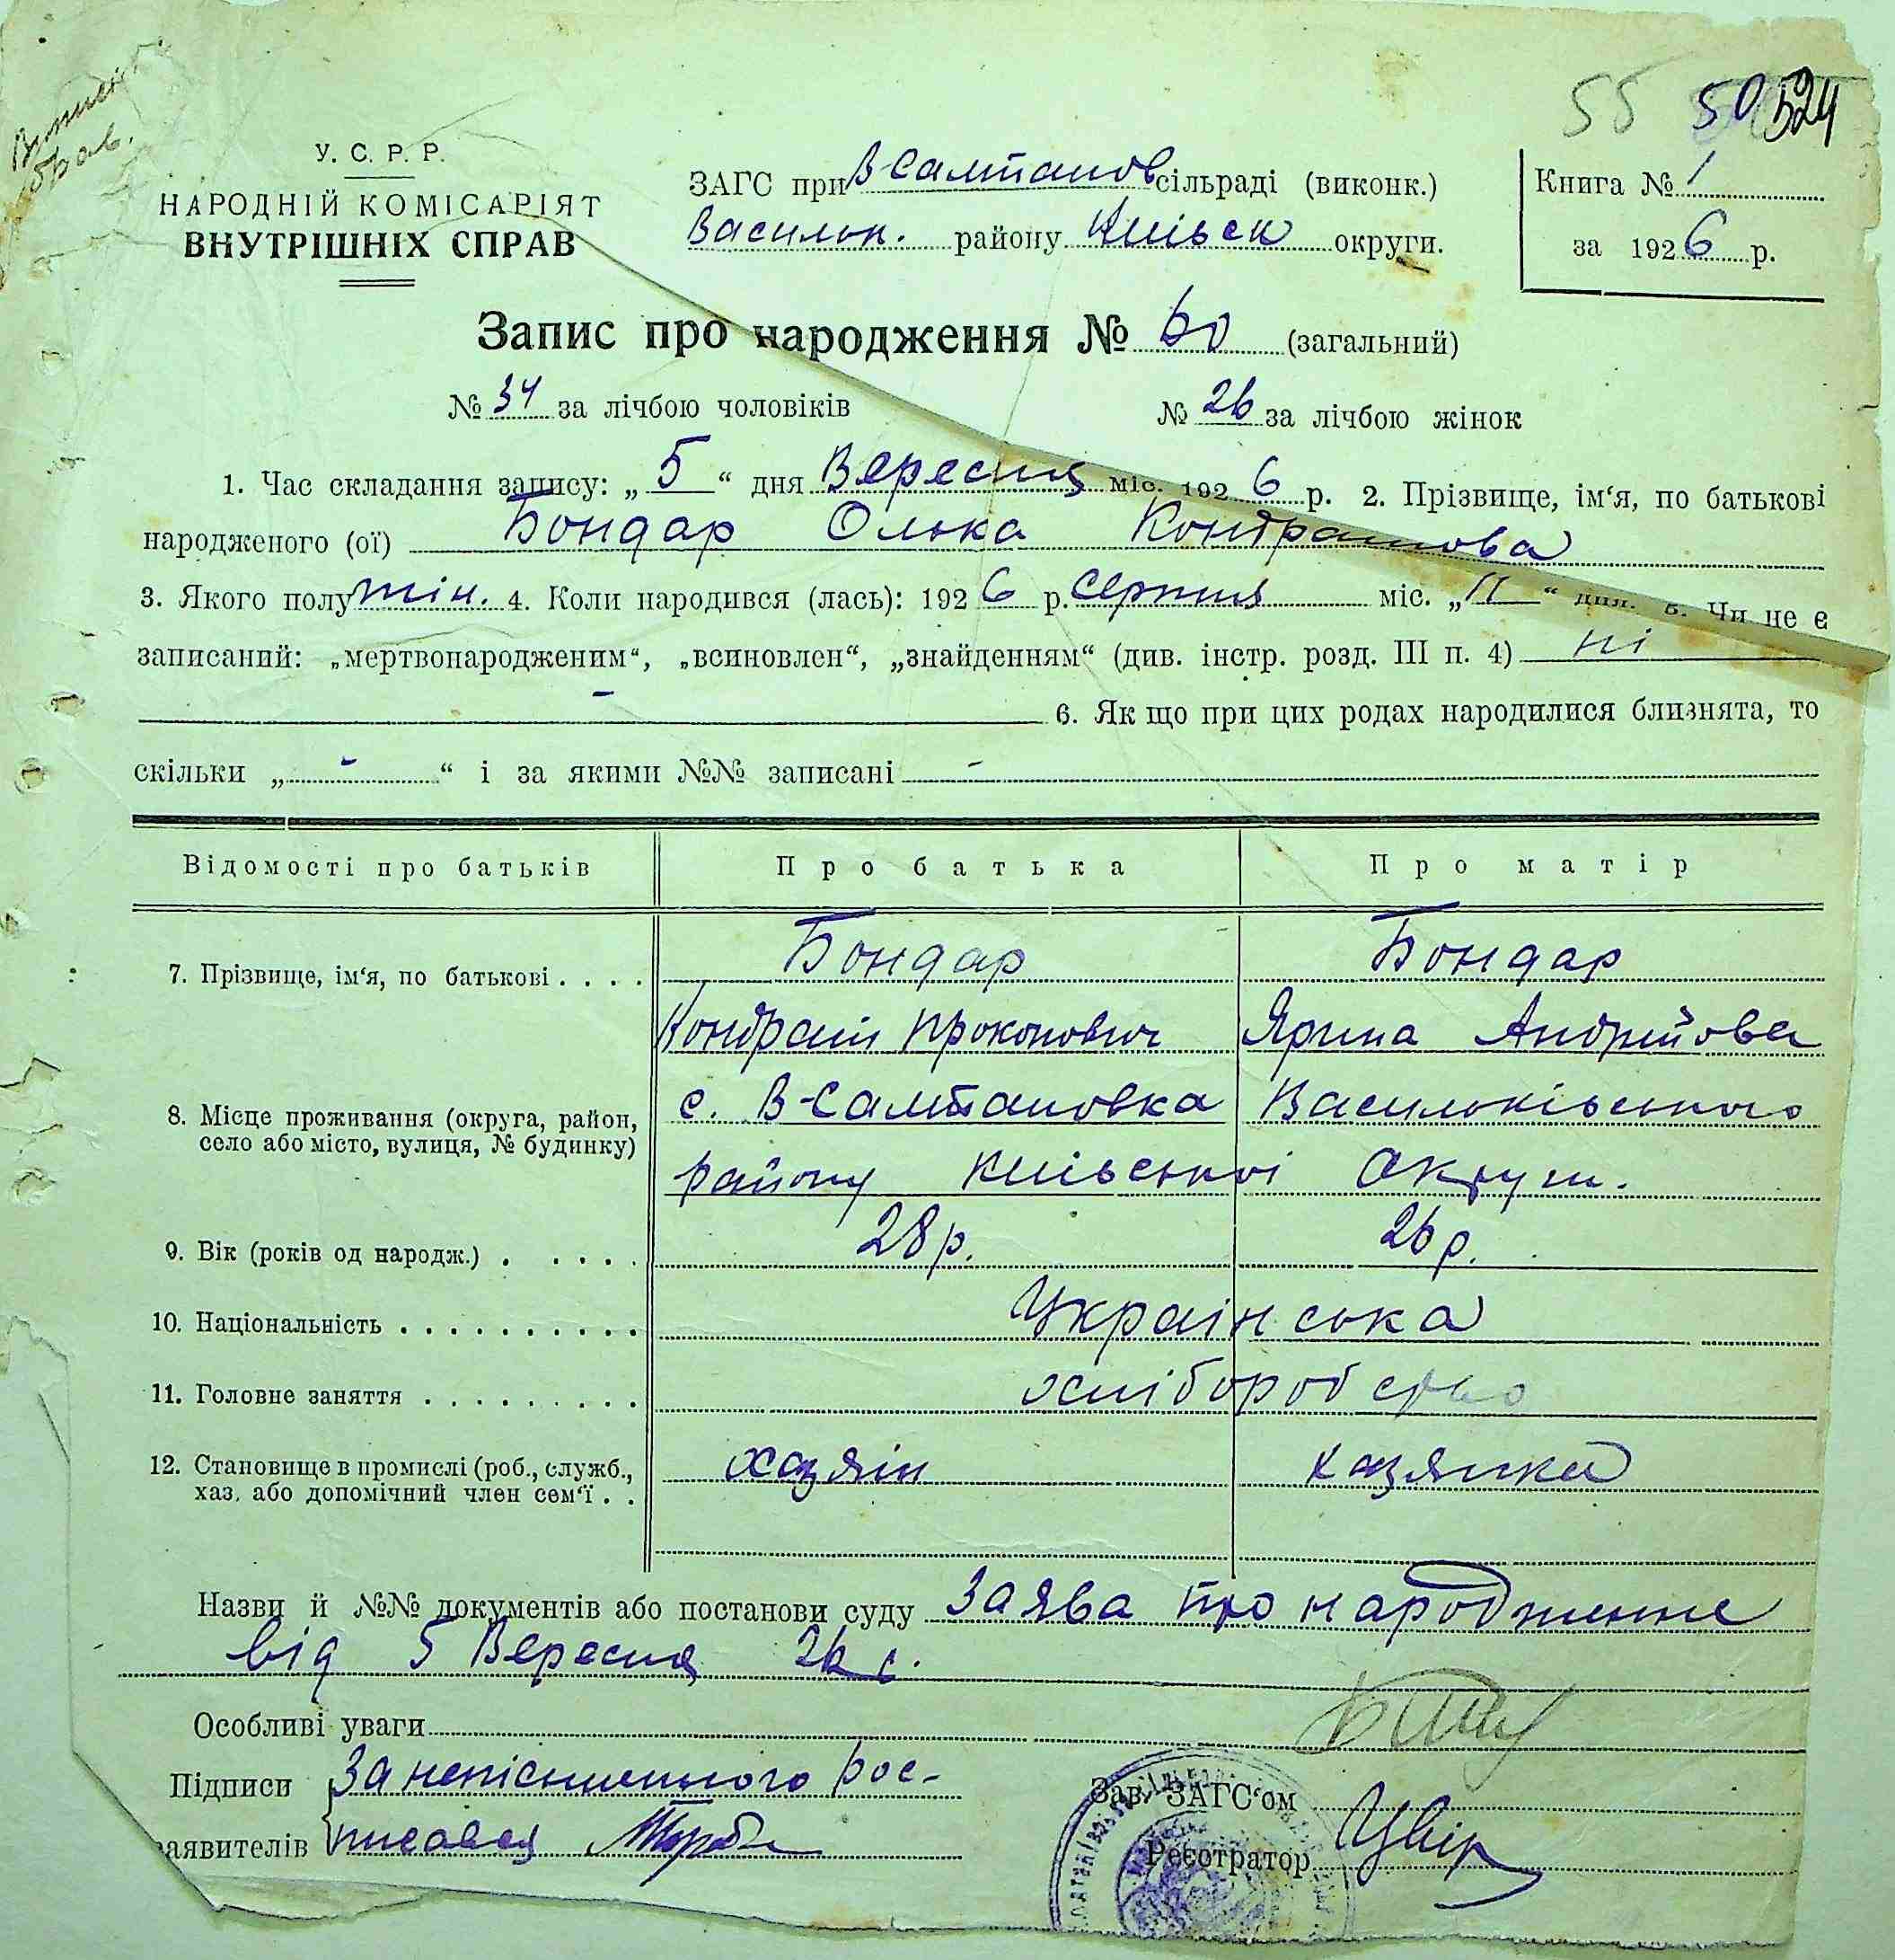 55 50 524
У. С. Р. Р.
НАРОДНІЙ КОМІСАРІЯТ
ВНУТРІШНІХ СПРАВ
ЗАГС при В-Салтанов сільраді (виконк.)
Васильк. району Київськ округи.
Книга № 1
за 1926 р.
Запис про народження № 60 (загальний)
№ 34 за лічбою чоловіків № 26 за лічбою жінок
1. Час складання запису: „5“ дня Вересня міс. 1926 р. 2. Прізвище, ім‘я, по батькові
народженого (ої) Бондар Олька Кондратова
3. Якого полу жін. 4. Коли народився (лась): 1926 р. Серпня міс. „11“ дня. 5. Чи не є
записаний: „мертвонародженим“, „всиновлен“, „знайденням“ (див. інстр. розд. III п. 4) ні
- 6. Як що при цих родах народилися близнята, то
скільки „ - “ і за якими №№ записані -
Відомості про батьків Про батька Про матір
7. Прізвище, ім‘я, по батькові . . . . Бондар Бондар
Кондрат Прокопович Ярина Андрійова
8. Місце проживання (округа, район, с. В-Салтановка Васильківського
село або місто, вулиця, № будинку)
району Київської Округи.
9. Вік (років од народж.) . . . . . 28 р. 26 р.
10. Національність . . . . . . . . . . Українська
11. Головне заняття . . . . . . . . . хліборобство
12. Становище в промислі (роб., служб., хазяїн хазяйка
хаз. або допомічний член сем‘ї . .
Назви й №№ документів або постанови суду Заява про народження
від 5 Вересня 26 р.
Особливі уваги
Підписи За неписьменного рос-
заявителів писався
Зав. ЗАГС‘ом
Реєстратор